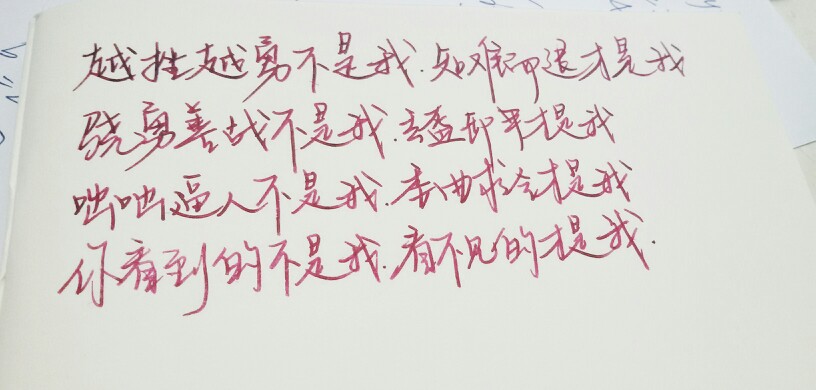 越挫越勇不是我.知难而退才是我
骁勇善战不是我.丢盔卸甲才是我
咄咄逼人不是我.委曲求全才是我
你看到的不是我.看不见的才是我.